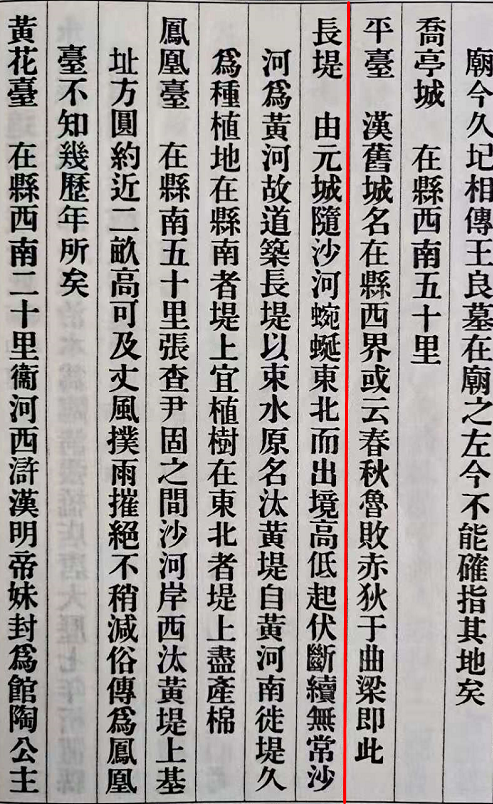 廟今久圮相傳王良墓在廟之左今不能確指其地矣
喬亭城　在縣西南五十里
平臺　漢舊城名在縣西界或云春秋魯敗赤狄于曲梁即此
長堤　由元城隨沙河蜿蜒東北而出境高低起伏斷續無常沙
河為黃河故道築長堤以束水原名汰黃堤自黃河南徙堤久
為種植地在縣南者堤上宜植樹在東北者堤上盡產棉
鳳凰臺　在縣南五十里張查尹固之間沙河岸西汰黃堤上基
址方圓約近二畝高可及丈風撲雨摧絕不稍減俗傳為鳳凰
臺不知幾歷年所矣
黃花臺　在縣西南二十里衞河西滸漢明帝妹封為館陶公主